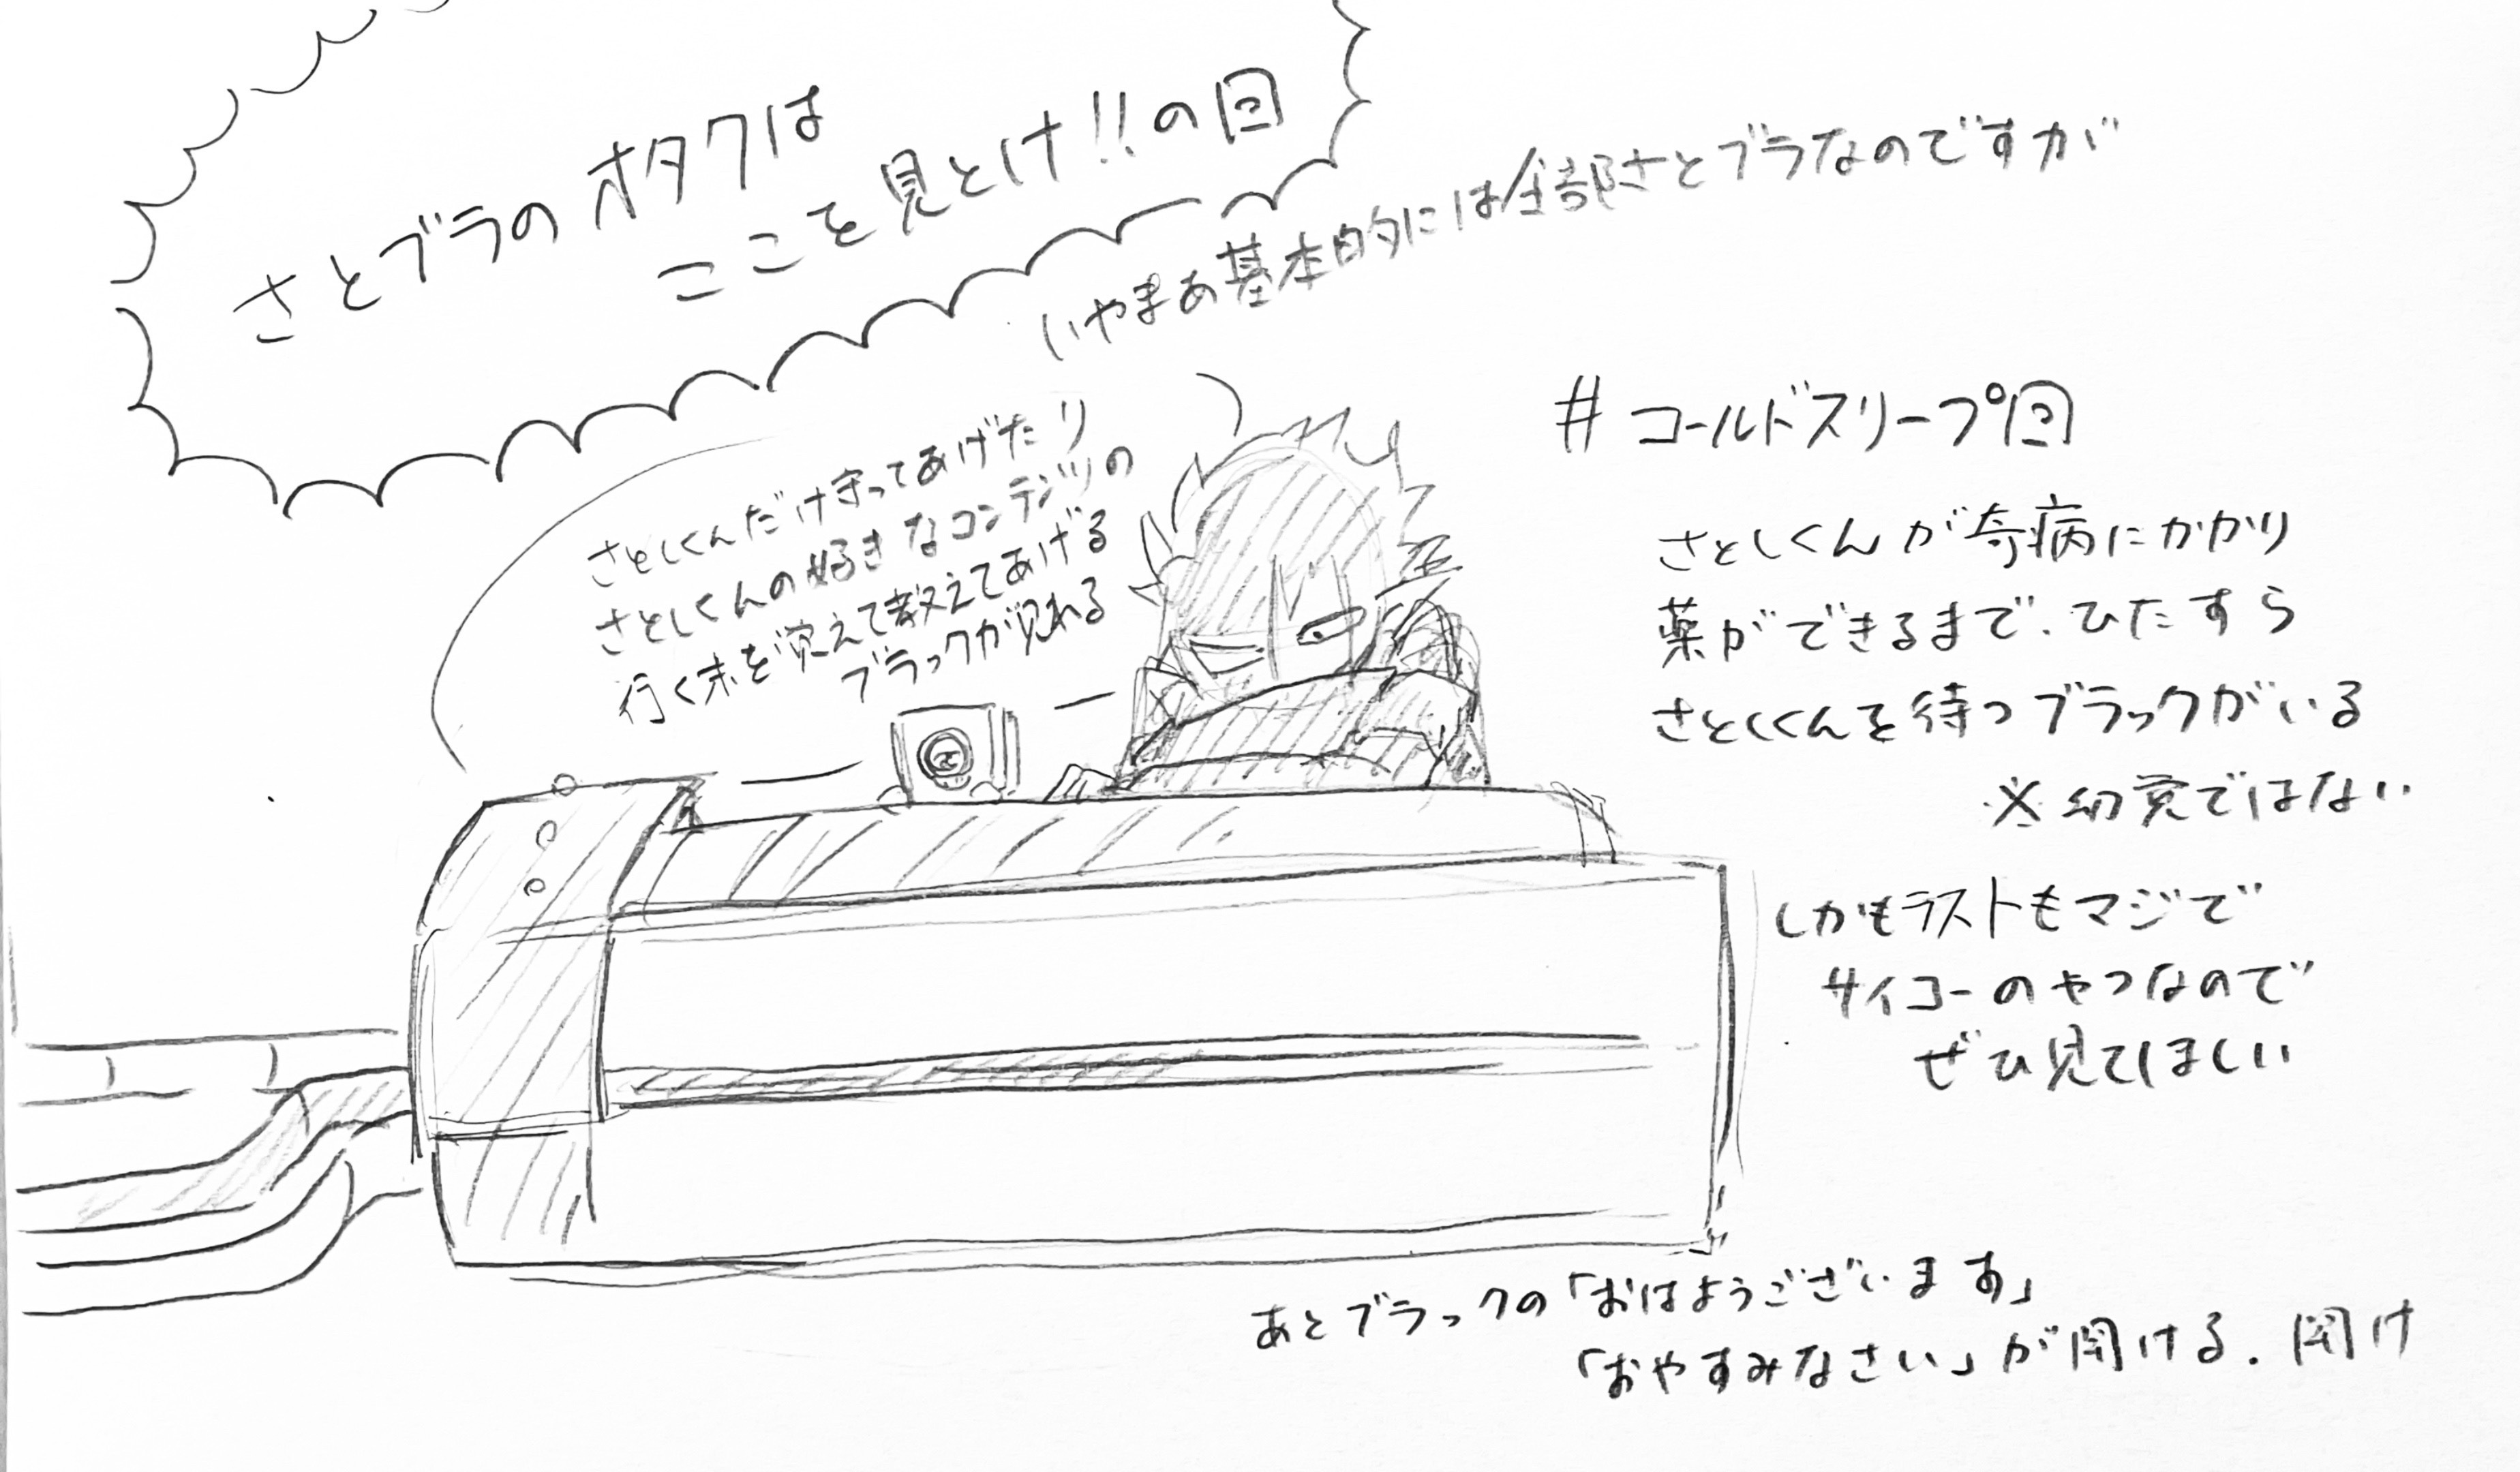 さとブラのオタクは
ここを見とけ!!の回
いやまあ基本的には全部さとブラなのですが
#コールドスリープ回
さとしくんが奇病にかかり
薬ができるまで、ひたすら
さとしくんを待つブラックがいる
※幻覚ではない
しかもラストもマジで
サイコーのやつなので
ぜひ見てほしい
さとしくんだけ守ってあげたり
さとしくんの好きなコンテンツの
行く末を覚えて教えてあげる
ブラックが見れる
あとブラックの「おはようございます」
「おやすみなさい」が聞ける.聞け